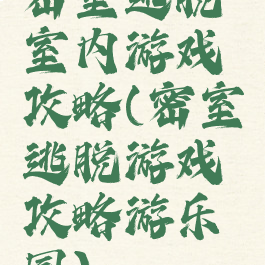 密室逃脱
室内游戏
攻略(密室
逃脱游戏
攻略游乐
园)